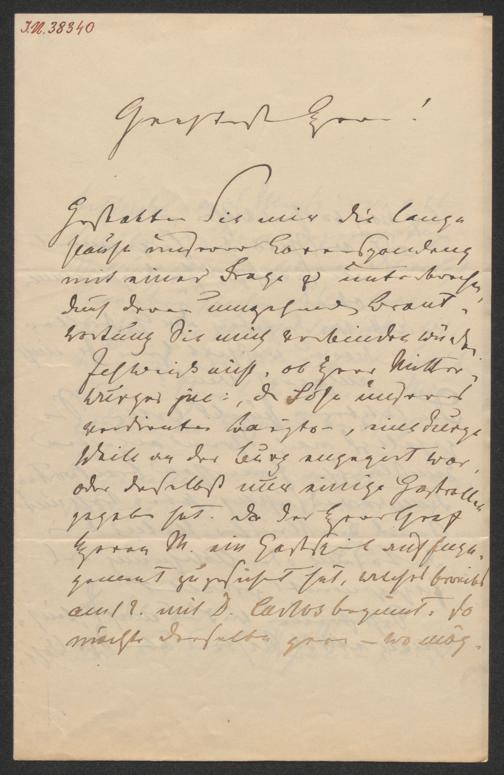 J.N. 38340
Geehrtester Herr!
Gestatten Sie mir die lange
Pause unserer Correspondenz
mit einer Frage zu unterbrechen,
durch deren umgehende Beant-
wortung Sie mich verbinden würden.
Ich weiß nicht, ob Herr Mitter-
wurzer jun:, der Sohn unseres
verdienten Baryto-, eine kurze
Weile an der Burg engagirt war,
oder daselbst nur einige Gastrollen
gegeben hat. Da der Herr Graf
Herrn M. ein Gastspiel auf
zugesichert hat, welches bereits
am 12. mit D. Carlos beginnt. So
möchte derselbe gern – wo mög-